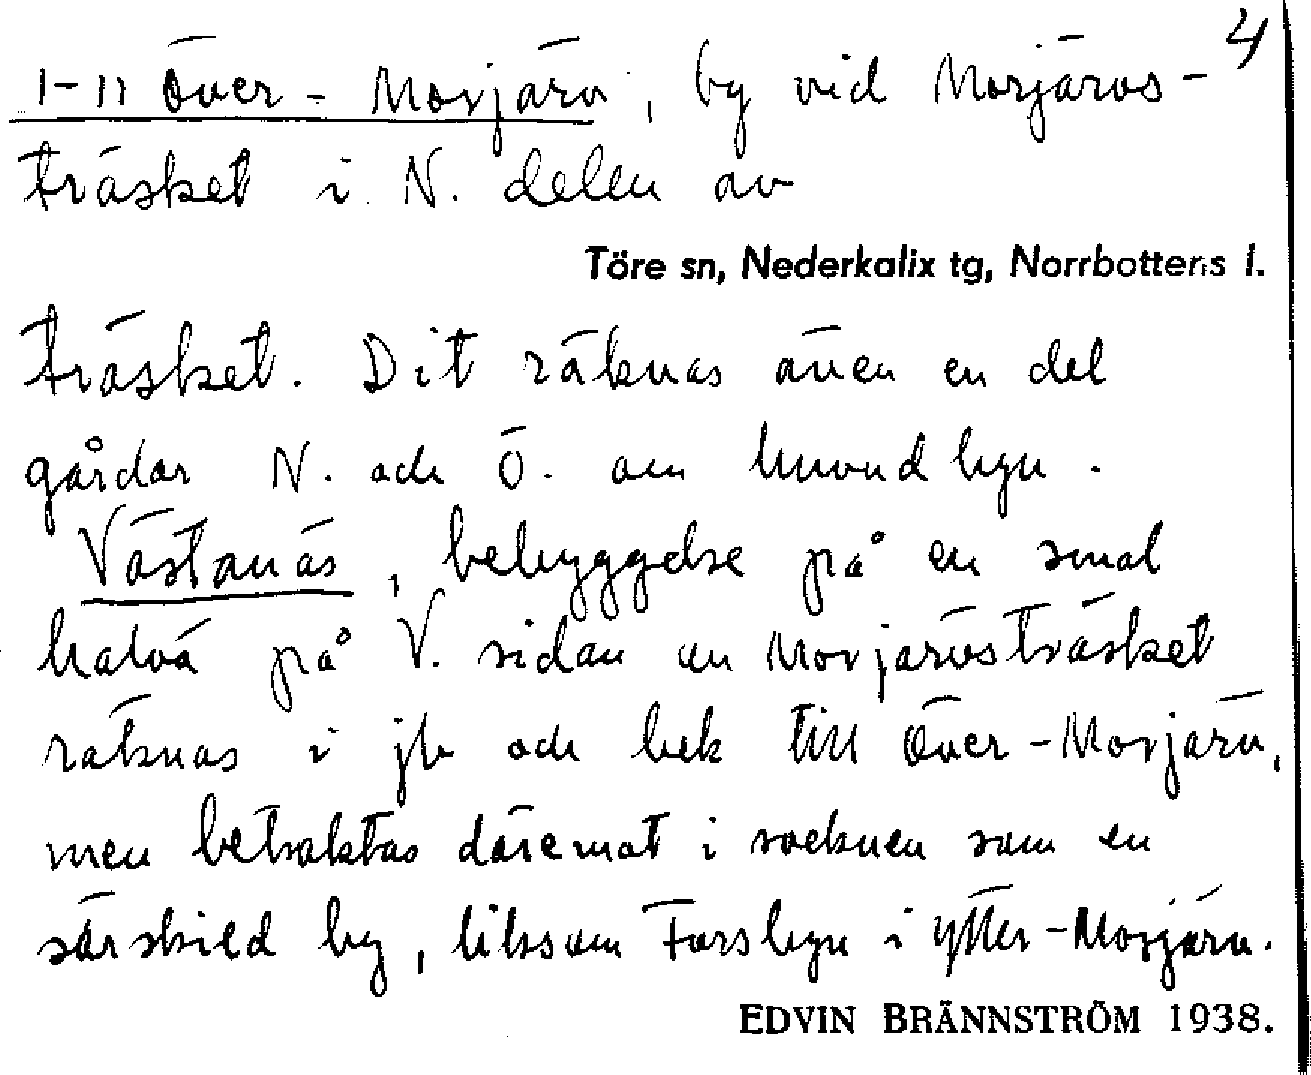 4
1-11 Över-Morjärv, by vid Morjärvs-
träsket i N. delen av
Töre sn, Nederkalix tg, Norrbottens l.
träsket. Dit räknas även en del
gårdar N. och Ö. om huvudbyn.
Västanäs, bebyggelse på en smal
halvö på V. sidan av Morjärvsträsket
räknas i jb och bek till Över-Morjärv,
men betraktas däremot i socknen som en
särskild by, liksom Forsbyn i Ytter-Morjärv.
EDVIN BRÄNNSTRÖM 1938.